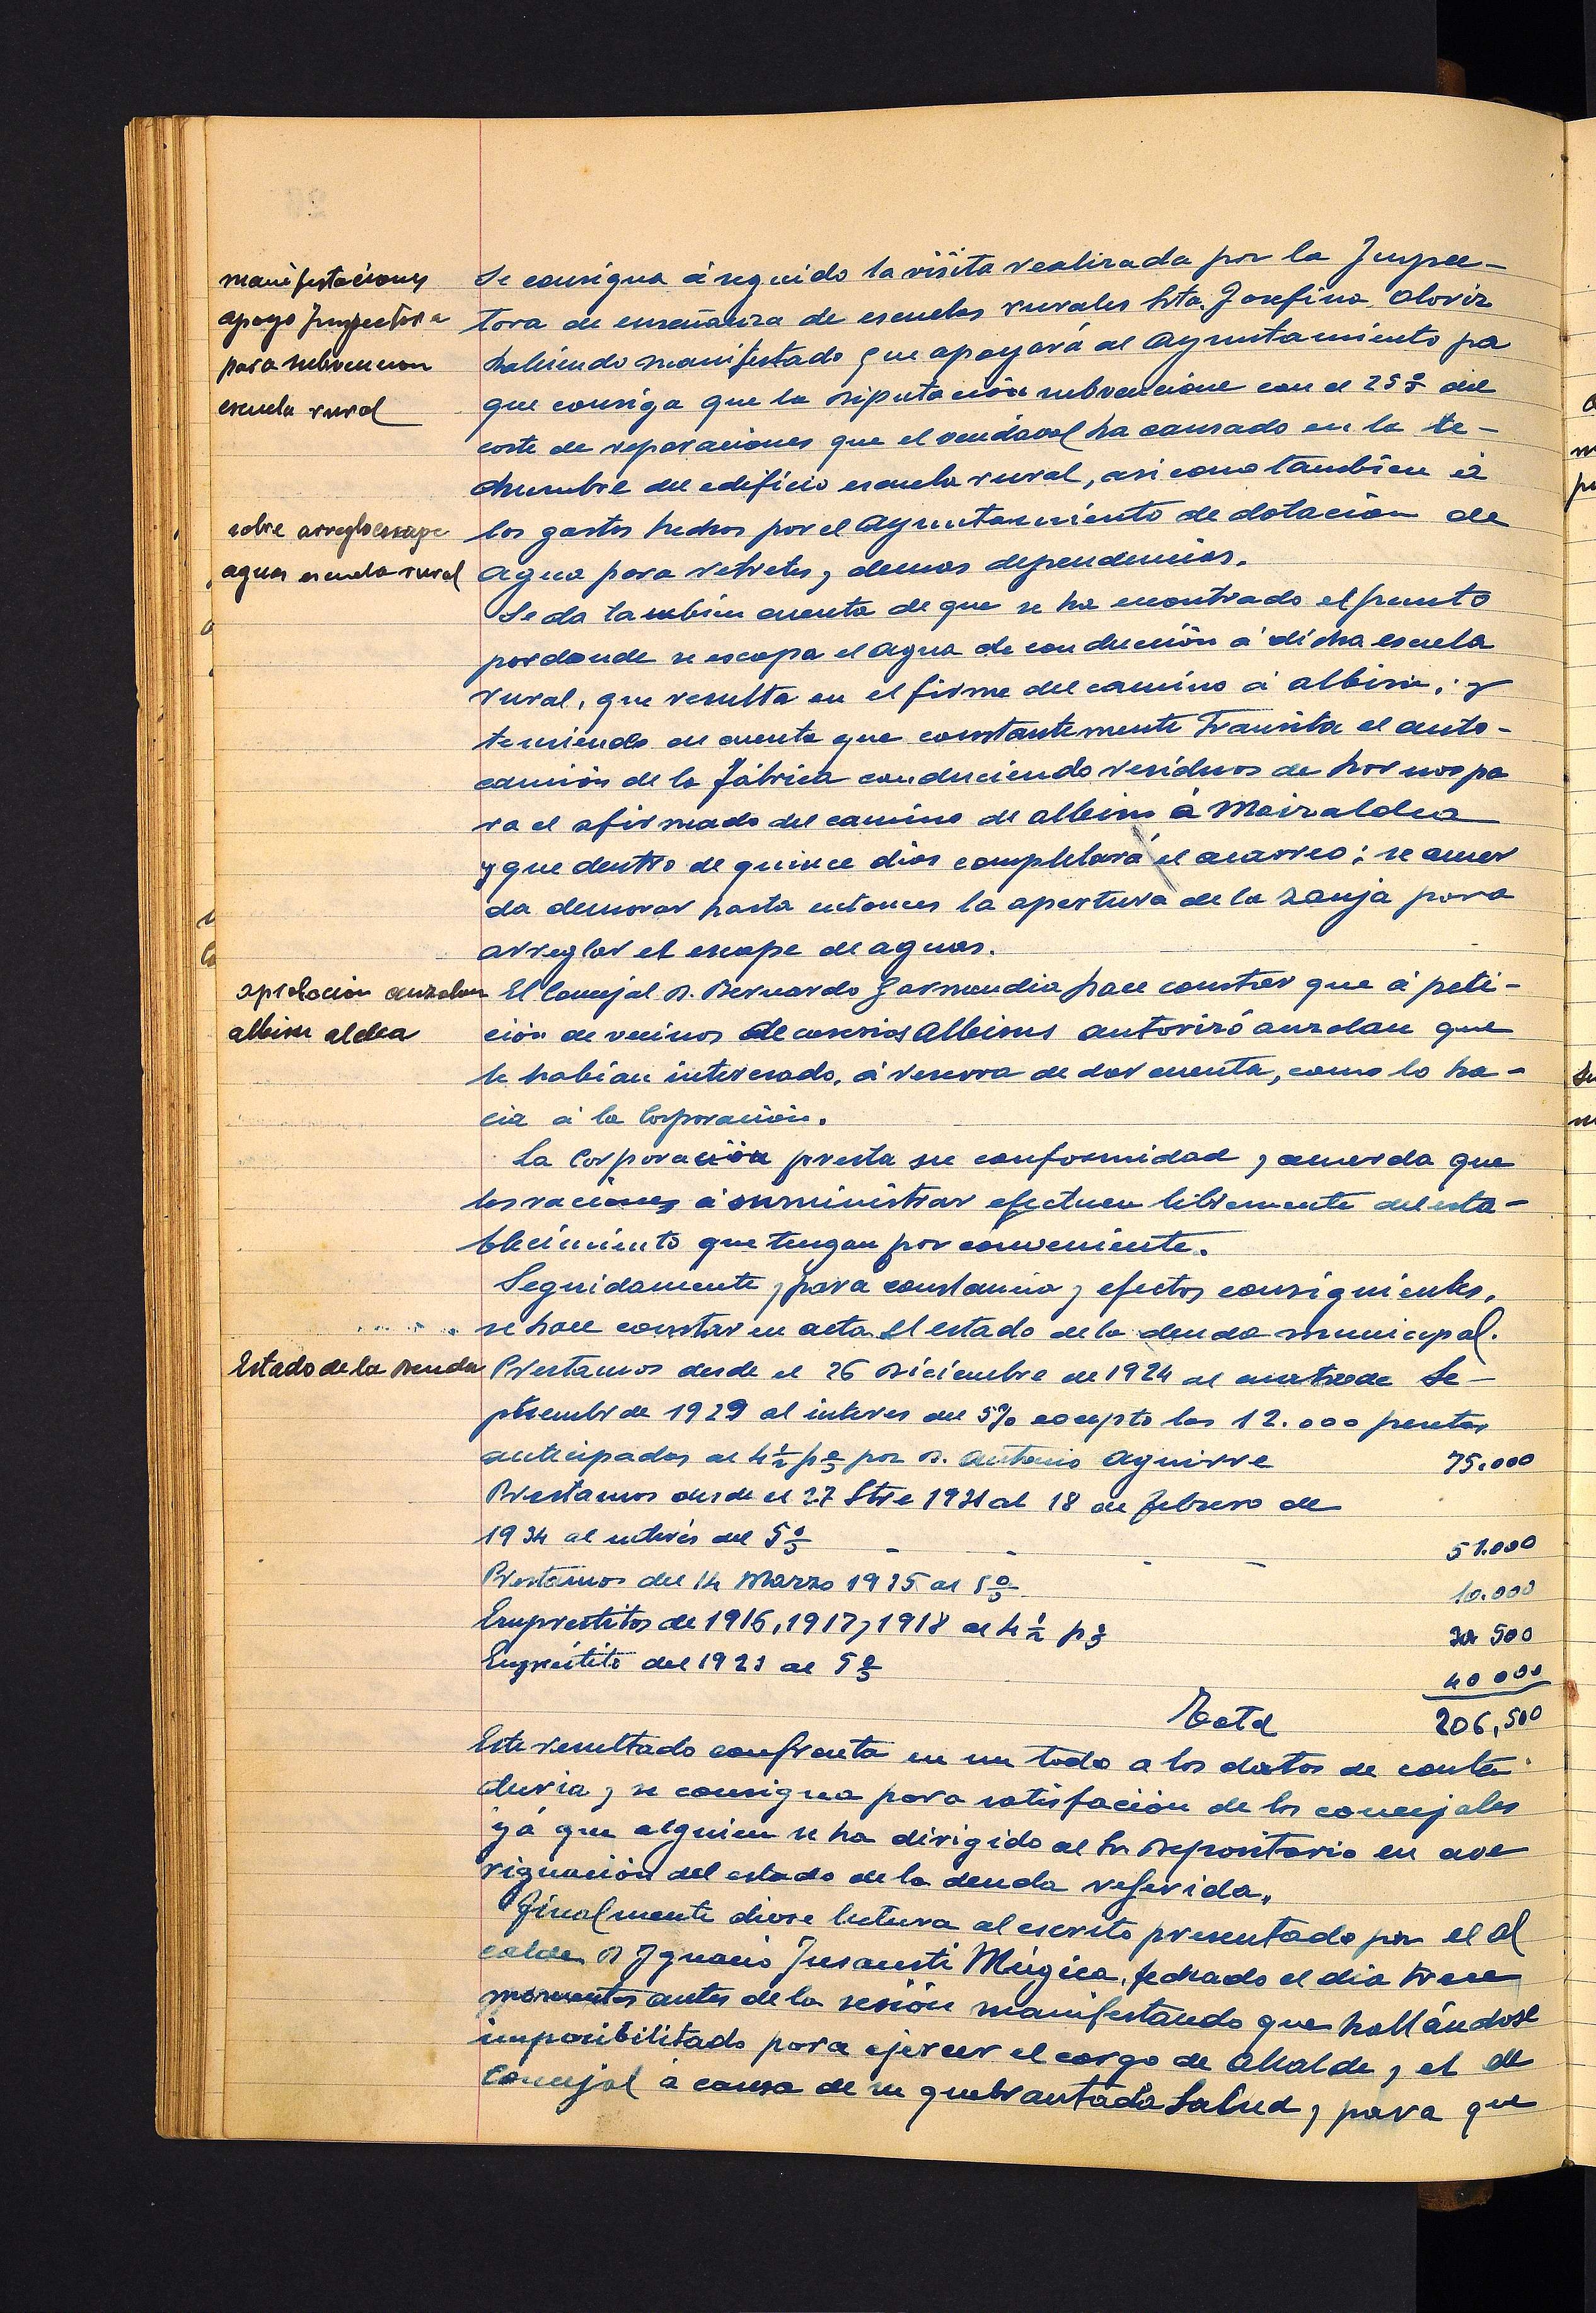 manifestaciones
apoyo Inspectora
para subvencion
escuela rural
Se consigna á seguido la visita realizada por la Inspec-
tora de enseñanza de escuelas rurales Srta. Josefina Oloriz
habiendo manifestado que apoyará al Ayuntamiento pa
que consiga que la Diputación subvencione con el 25 % del
coste de reparaciones que el vendaval ha causado en la te-
chumbre del edificio escuela rural, asi como tambien á
sobre arreglo escape
aguas escuela rural
los gastos hechos por el Ayuntamiento de dotación de
agua para retretes y demas dependencias.
Se da tambien cuenta de que se ha encontrado el punto
por donde se escapa el agua de conducción á dicha escuela
rural, que resulta en el firme del camino á albisu; y
teniendo en cuenta que constantemente transita el auto-
camión de la fábrica conduciendo residuos de hornos pa
ra el afirmado del camino de albisu á Maizaldea
y que dentro de quince dias completará el acarreo; se acuer
da demorar hasta entonces la apertura de la zanja para
arreglar el escape de aguas.
aprobacion auzolan
albisu aldea
El Concejal D. Bernardo Garmendia hace constar que á peti-
ción de vecinos de caserios Albisus autorizó auzolan que
le habian interesado, á reserva de dar cuenta, como lo ha-
cia á la Corporación.
La Corporación presta su conformidad y acuerda que
las raciones á suministrar efectuen libremente del esta-
blecimiento que tengan por conveniente.
Seguidamente y para constancia y efectos consiguientes,
se hace constar en acta el estado de la deuda municipal.
Estado de la Deuda
Prestamos desde el 26 Diciembre de 1924 al cuatro de Se-
ptiembr de 1929 al interes del 5% excepto las 12.000 pesetas
anticipadas al 4 1/2 p % por D. Antonio Aguirre 75.000
Prestamos desde el 27 Stre 1931 al 18 de febrero de
1934 al interés del 5 % - - - - 51.000
Prestamos del 14 Marzo 1935 al 5 % 10.000
Emprestitos de 1916, 1917 y 1918 al 4 1/2 p % 30 500
Empréstito del 1923 al 5 % 40 000
Total 206,500
Este resultado confronta en un todo a los datos de conta
duria y se consigna para satisfación de los concejales
yá que alguien se ha dirigido al Sr. Depositario en ave
riguación del estado de la deuda referida.
Finalmente diose lectura al escrito presentado por el Al
calde D Ygnacio Insausti Múgica, fechado el dia trece
momentos antes de la sesión manifestando que hallándose
imposibilitado para ejercer el cargo de Alcalde y el de
Concejal á causa de su quebrantada Salud y para que